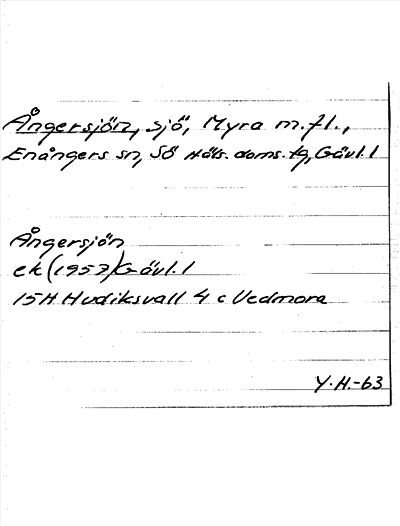 Ångersjön, sjö, Myra m.fl.,
Enångers sn, Sö Häls. doms. tg, Gävl. l
Ångersjön
ek (1957) Gävl. l
15H Hudiksvall 4 c Vedmora
Y.H.-63